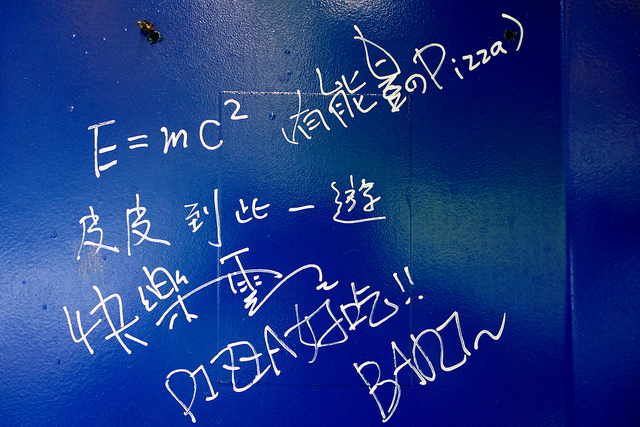 E=mc² (有能量のPizza)
皮皮到此一遊
快樂雲~
PIZZA好吃!!
BAOZI~